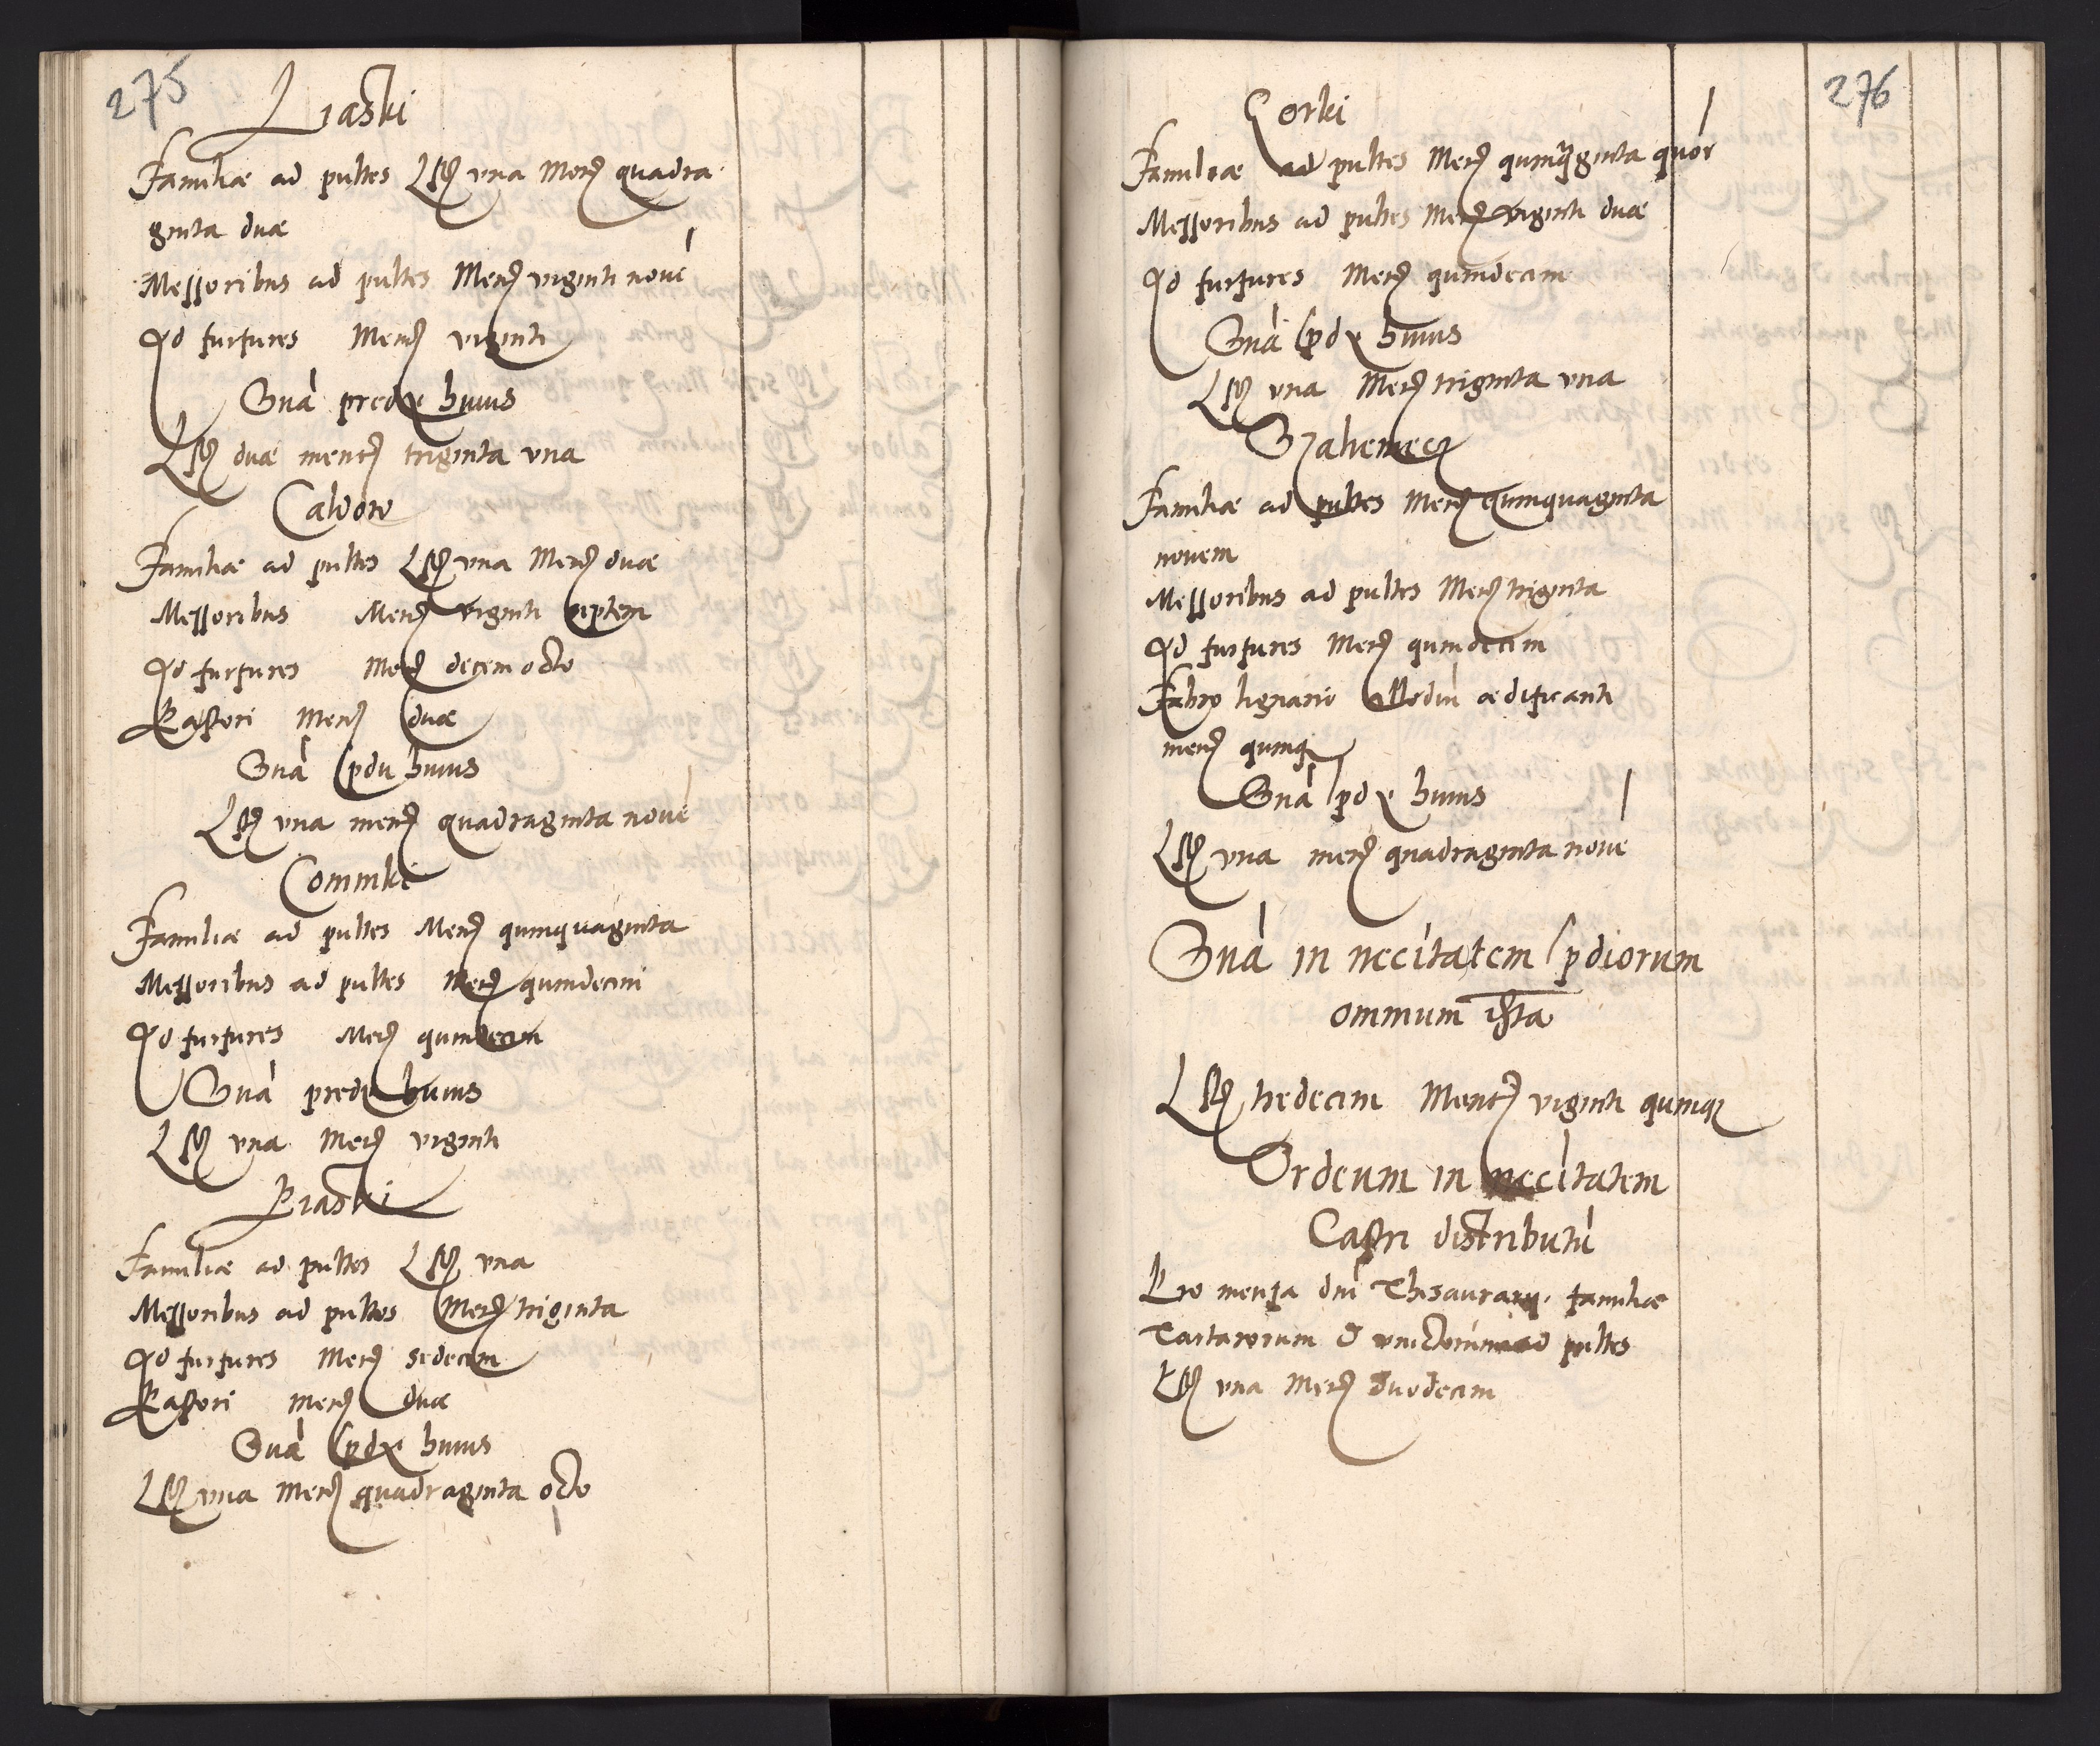 275
Liaski
Familiæ ad pultes Lſt una Menſ quadra
ginta duæ
Messoribus ad pultes Menſ viginti nové
Ad furfures Menſ viginti
Suá pred huius
Lſt duæ menſ triginta una
Caldow
Familiæ ad pultes Lſt una Menſ duæ
Messoribus Menſ viginti septem
Ad furfures Menſ decem octo
Pastori Menſ duæ
Suá pdii huius
Lſt una menſ quadraginta nové
Commki
Familiæ ad pultes Menſ quinquaginta
Messoribus ad pultes Menſ quindecim
Ad furfures Menſ quindecim
Suá pred huius
Lſt una Menſ viginti
Piaski
Familiæ ad pultes Lſt una
Messoribus ad pultes Menſ triginta
Ad furfures Menſ sedecim
Pastori menſ duæ
Suá pd huius
Lſt una Menſ quadraginta octo
276
Gorki
Familiæ ad pultes Menſ quinqginta quór
Messoribus ad pultes Menſ viginti duæ
Ad furfures Menſ quindecim
Suá pd huius
Lſt una Menſ triginta una
Familiæ ad pultes Menſ quinquaginta
novem
Messoribus ad pultes Menſ triginta
Ad furfures Menſ quindecim
Fabro lignario ædificanti
menſ quinq
Suá pd huius
Lſt una menſ quadraginta nové
Suá in necítatem pdiorum
omnium iſta
Lſt tredecim Menſ viginti quinq
Ordeum in necítatem
Castri distributú
Pro mensa dní Thisaurarij familiæ
Tartarorum & vinctorum ad pultes
Lſt una Menſ duodecim